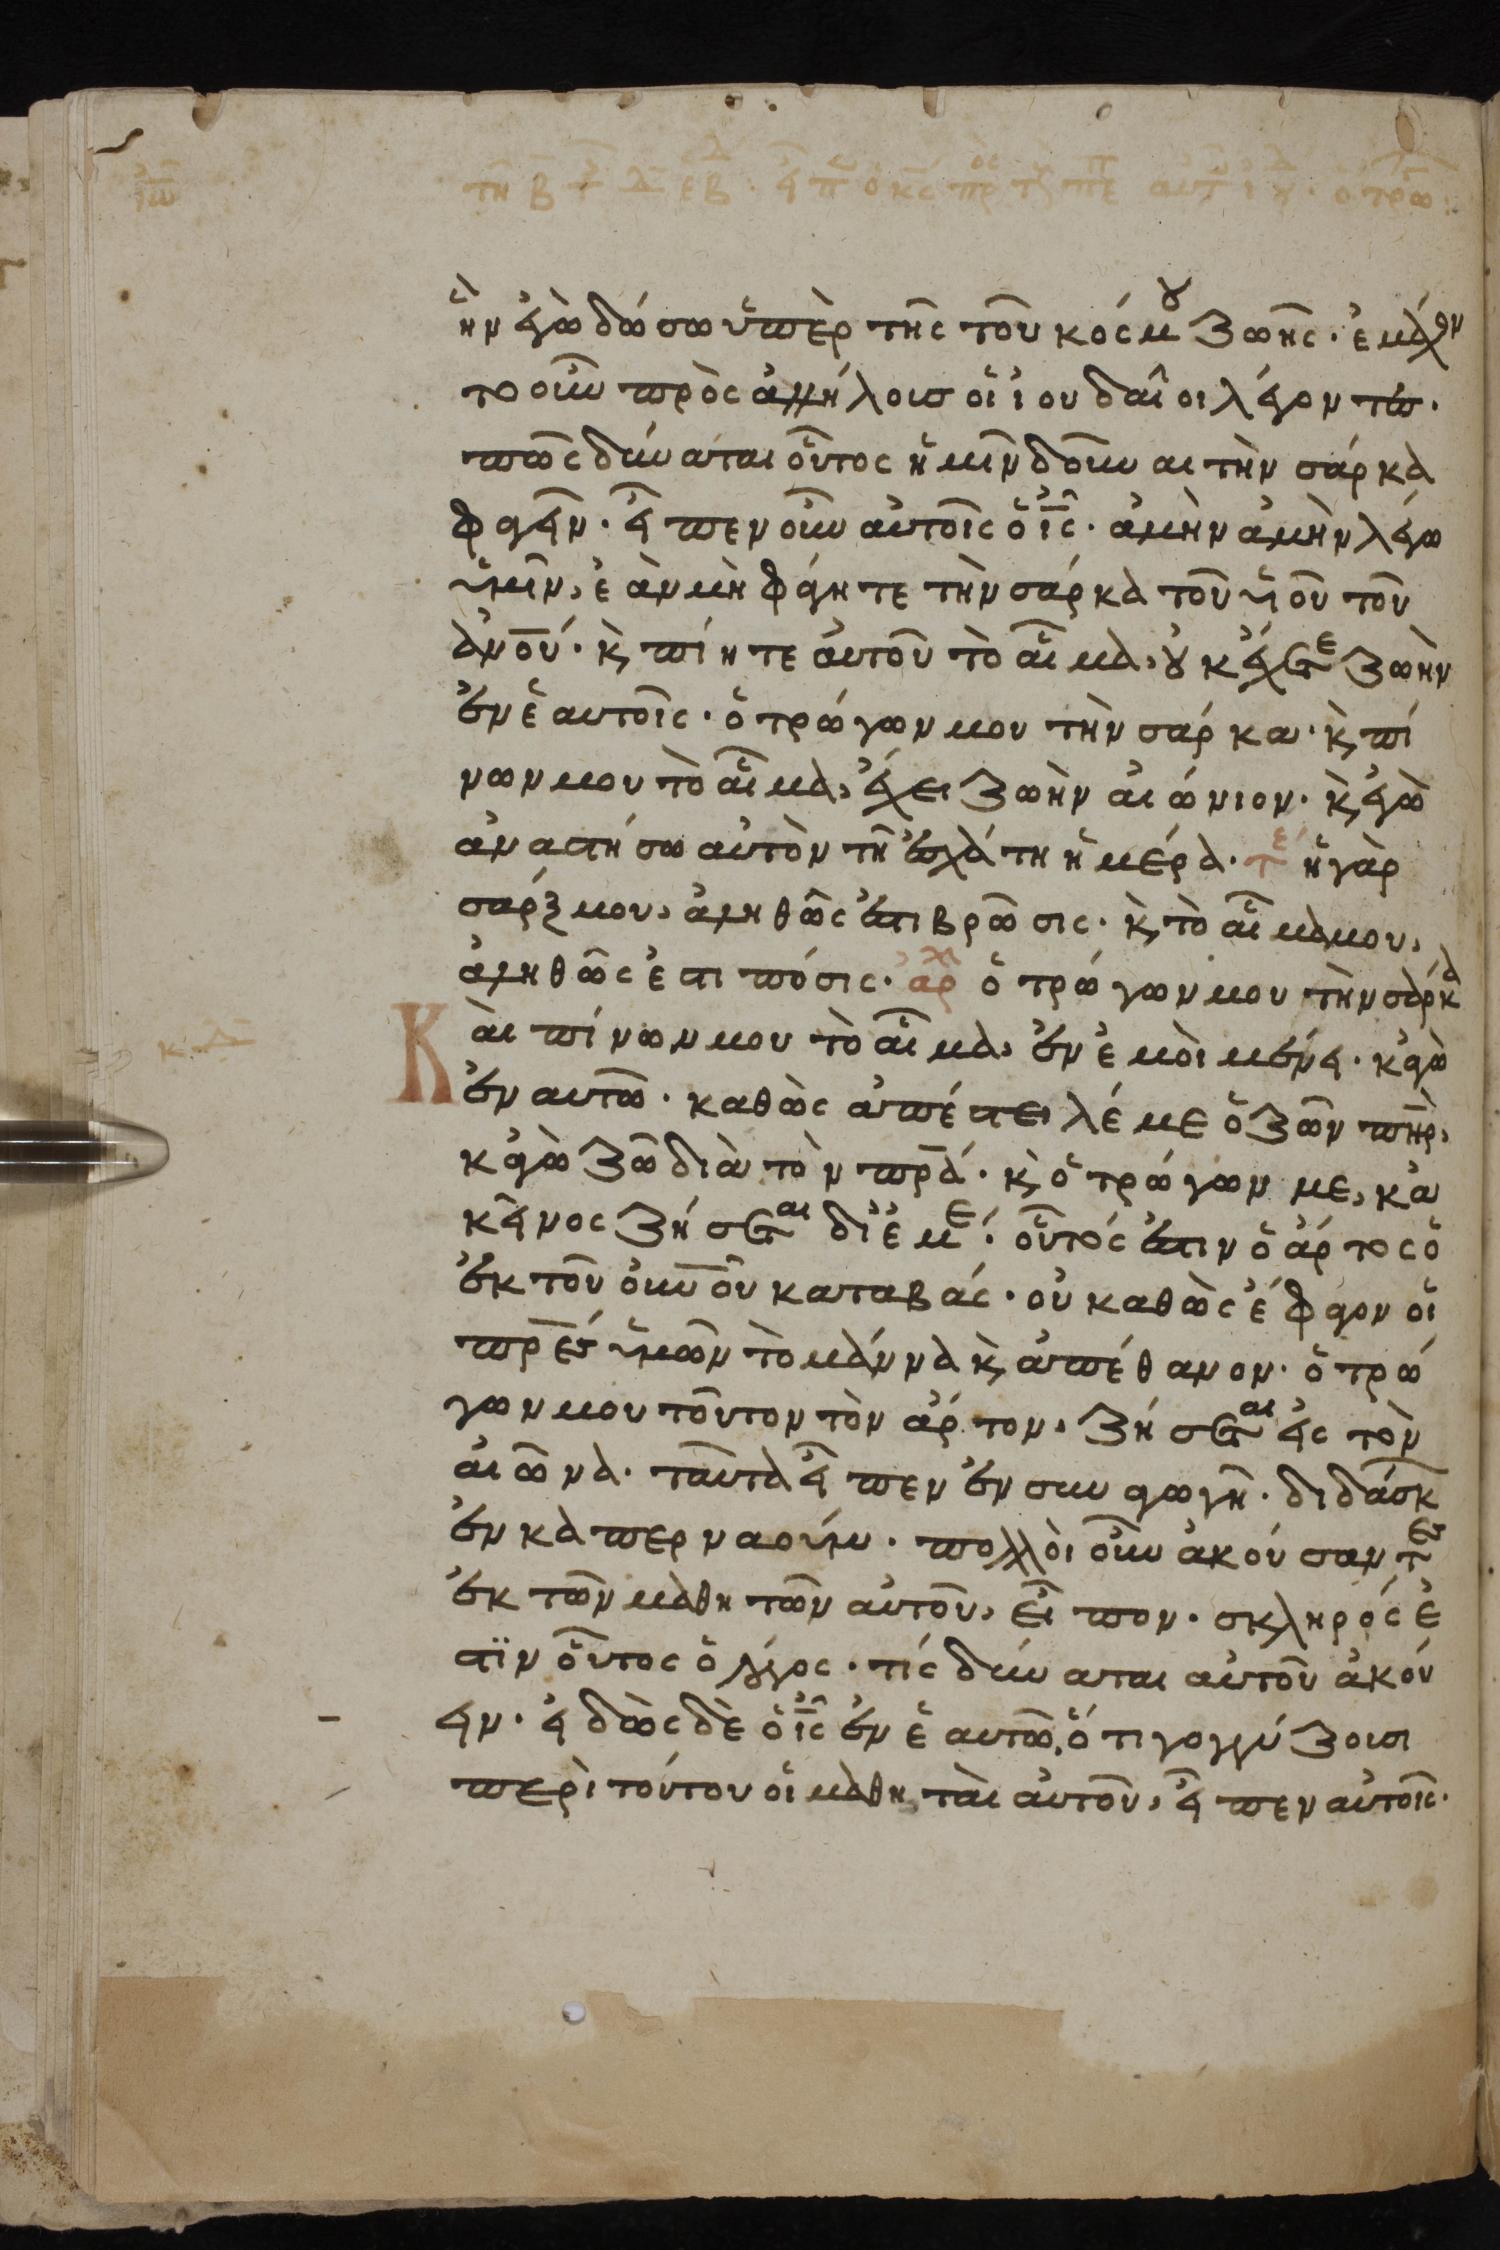 ἣν ἐγὼ δώσω ὑπὲρ τῆς τοῦ κόσμου ζωῆς· ἐμάχον
το οὖν πρὸς ἀλλήλουσ οἱ ἰουδαῖοι λέγοντες·
πῶς δύναται οὗτος ἡμῖν δοῦναι τὴν σάρκα
φαγεῖν· εἶπεν οὖν αὐτοῖς ὁ ις· ἀμὴν ἀμὴν λέγω
ὑμῖν, ἐὰν μὴ φάγητε τὴν σάρκα τοῦ υἱοῦ τοῦ
ανου· κ πίητε αὐτοῦ τὸ αἷμα, οὐκ ἔχετε ζωὴν
ἐν ἑαυτοῖς· ὁ τρώγων μου τὴν σάρκα· κ πί
νων μου τὸ αἷμα, ἔχει ζωὴν αἰώνιον· κ ἐγὼ
ἀναστήσω αὐτὸν τῆ ἐσχάτη ἡμέρα· τε ἡ γὰρ
σάρξ μου, ἀληθῶς ἐστι βρῶσις· κ τὸ αἷμα μου,
ἀληθῶς ἐστι πόσις· αρχ ὁ τρώγων μου τὴν σάρκα
Και πίνων μου τὸ αἷμα, ἐν ἐμοὶ μένει· κἀγὼ
ἐν αυτῶ· καθὼς ἀπέστειλέ με ὁ ζῶν πηρ,
κἀγὼ ζῶ διὰ τὸν πρα· κ ὁ τρώγων με, κα
κεῖνος ζήσεται δι' ἐμέ· οὗτός ἐστιν ὁ ἄρτος ὁ
ἐκ τοῦ ουνου καταβάς· οὐ καθὼς ἔφαγον οἱ
πρες ὑμῶν τὸ μάννα κ ἀπέθανον· ὁ τρώ
γων μου τοῦτον τὸν ἄρτον, ζήσεται εἰς τὸν
αἰῶνα· ταῦτα εἶπεν ἐν συναγωγῆ· διδάσκ
ἐν καπερναούμ· πολλοὶ οὖν ἀκούσαντες
ἐκ τῶν μαθητῶν αὐτοῦ, εἶπον· σκληρός ἐ
στϊν οὗτος ὁ λόγος· τίς δύναται αὐτοῦ ἀκού
ειν· εἰδὼς δὲ ὁ ις ἐν ἑαυτῶ, ὅτι γογγύζουσι
περὶ τούτου οἱ μαθηταὶ αὐτοῦ, εἶπεν αὐτοῖς·